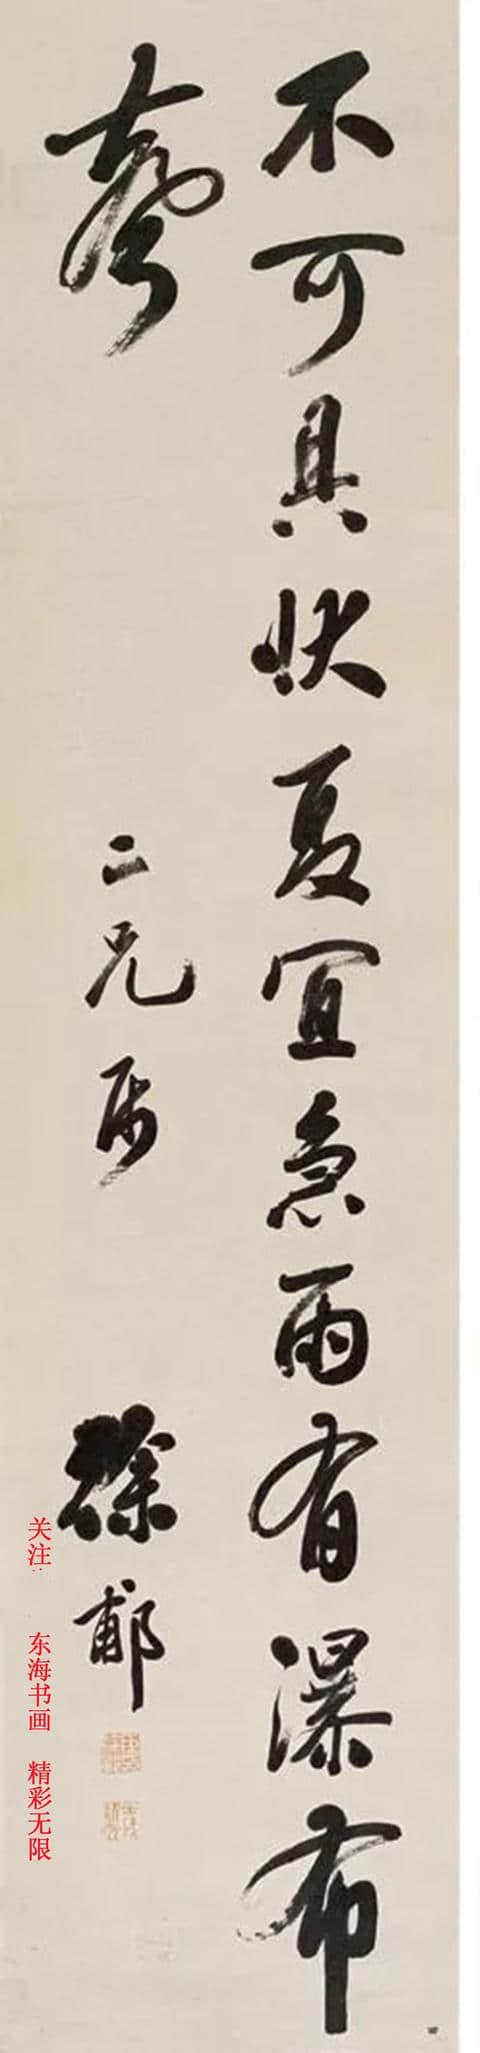 不可具状夏宜急雨有瀑布
聲
二兄属
徐郙
关注
东海书画 精彩无限